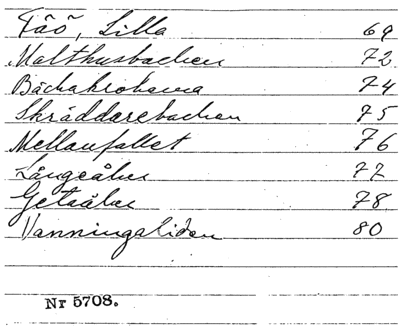 Tåö, Lilla 69
Malthusbacken 72
Bäckakrokarna 74
Skräddarebacken 75
Mellanfallet 76
Långeåker 77
Getaåker 78
Vanningsliden 80
Nr 5708.